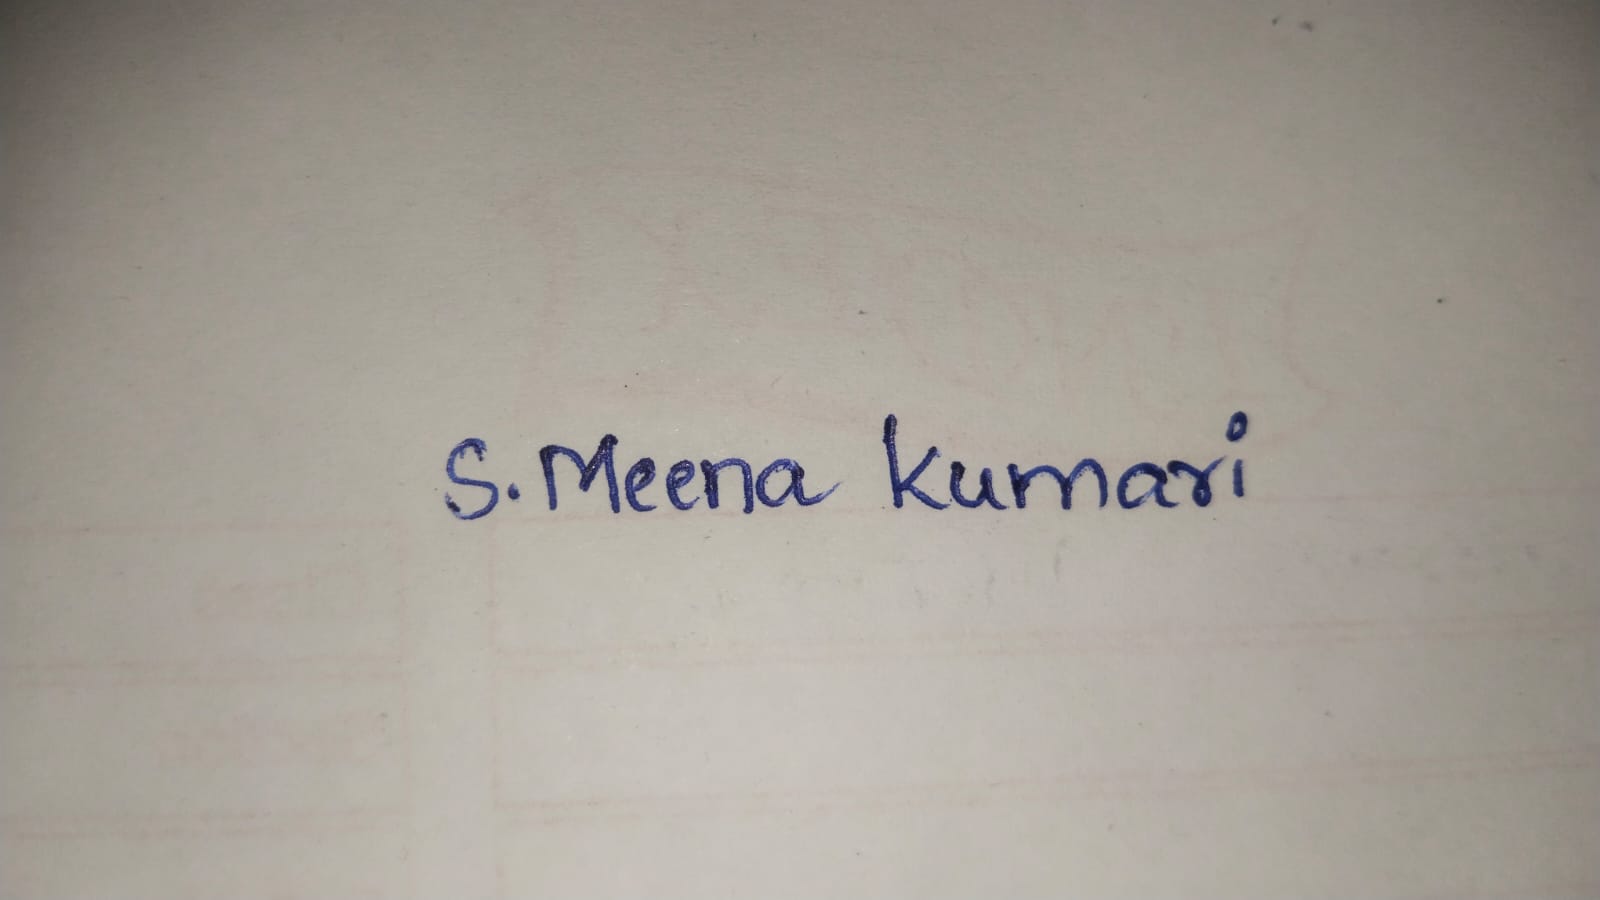 S. Meena Kumari